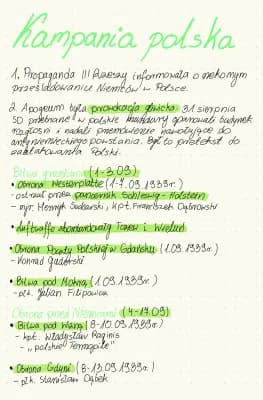 Kampania polska
1. Propaganda III Rzeszy informowała o rzekomym
prześladowaniu Niemców w Polsce.
2. Apogeum była prowokacja gliwicka 31 sierpnia
SD przebrane w polskie mundury opanowali budynek
radiostacji i nadali przemówienie nawołujące do
antyniemieckiego powstania. Był to pretekst do
zaatakowania Polski.
Bitwy graniczne (1-3.09)
• Obrona Westerplatte (1-7.09.1939r.)
- ostrzał przez pancernik Schleswig-Holstein
- mjr. Henryk Sucharski, kpt. Franciszek Dąbrowski
• Luftwaffe zbombardowały Tczew i Wieluń
• Obrona Poczty Polskiej w Gdańsku (1.09.1939r.)
- Konrad Guderski
• Bitwa pod Mokrą (1.09.1939r.)
- płk. Julian Filipowicz
Obrona przed Niemcami (4-17.09)
• Bitwa pod Wizną (8-10.09.1939r.)
- kpt. Władysław Raginis
- „polskie Termopile"
• Obrona Gdyni (8-13.09.1939r.)
- płk. Stanisław Dąbek